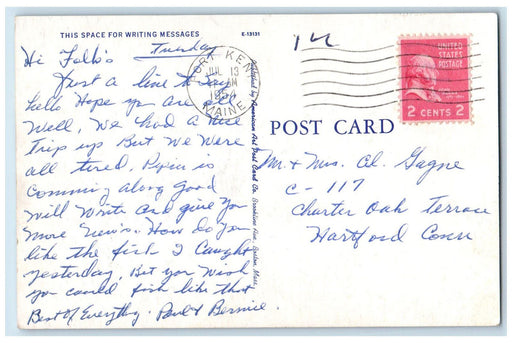 THIS SPACE FOR WRITING MESSAGES
E-13131
Tuesday
Hi Folks
Just a line to say
hello Hope you are all
Well, We had a nice
trip up But We Were
all tired. is
Comming along good
Will Write and give you
more News. How do you
like the fish I Caught
yesterday, Bet you Wish
you could fish like that
Best of Everything. Paul & Bernice.
YORK KENT
JUL 13
AM
MAINE
UNITED
STATES
POSTAGE
2 CENTS 2
POST CARD
Mr & Mrs. Al. Gagne
C-117
Charter Oak Terrace
Hartford Conn